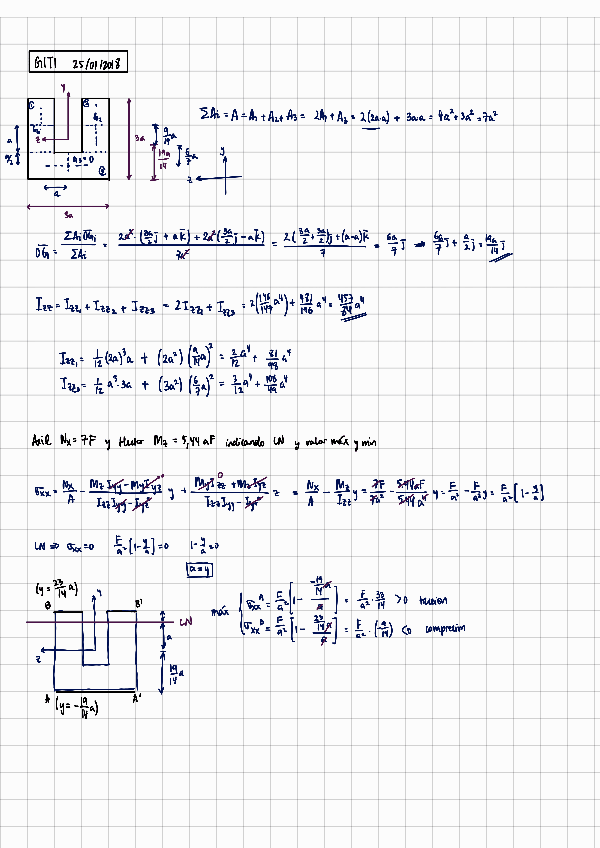 GITI 25/01/2018
y
z
a
a/2
a
3a
3a
19a/14
9/14 a
6/7 a
y
z
ΣAi = A = A1 + A2 + A3 = 2A1 + A3 = 2(2a·a) + 3a·a = 4a² + 3a² = 7a²
OG = ΣAi OGi / ΣAi = 2a²·(3a/2 j + a k) + 2a²(3a/2 j - a k) / 7a² = 2(3a/2 + 3a/2)j + (a-a)k / 7 = 6a/7 j ⇒ 6a/7 j + a/2 j = 19a/14 j
Izz = Izz1 + Izz2 + Izz3 = 2Izz1 + Izz3 = + a⁴ = 457/84 a⁴
Izz1 = 1/12 (2a)³a + (2a²)(9/14 a)² = 2/12 a⁴ + 81/98 a⁴
= 1/12 a³·3a + (3a²)(6/7 a)² = 3/12 a⁴ + 108/49 a⁴
Axil Nx = 7F y Mz = 5,44 aF indicando LN y valor máx y min
σxx = Nx/A - Mz Iyy - My Iyz / Izz Iyy - Iyz² y + My Izz + Mz Iyz / Izz Iyy - Iyz² z = Nx/A - Mz/Izz y = 7F/7a² - 5,44aF/5,44a⁴ y = F/a² - F/a³ y = F/a² [1 - y/a]
LN ⇒ σxx = 0 F/a² [1 - y/a] = 0 1 - y/a = 0
a = y
(y = 23/14 a)
B
B'
y
LN
z
a
19/14 a
A
A'
(y = -19/14 a)
máx
σxx A = F/a² [1 - -19/14 a / a] = F/a² · 33/14 > 0 tension
σxx B = F/a² [1 - 23/14 a / a] = F/a² · (-9/14) < 0 compresion